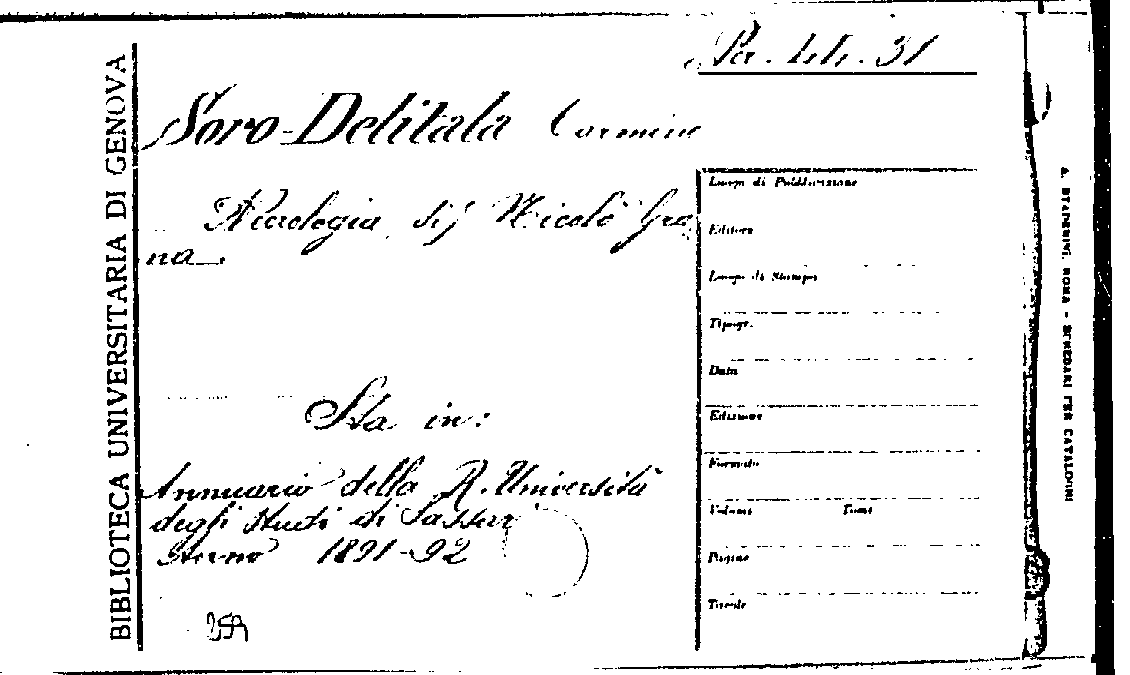 Pa. 44. 31
BIBLIOTECA UNIVERSITARIA DI GENOVA
Soro-Delitala Carmine
Necrologia di Nicolò Gra
na.
Sta in:
Annuario della R. Università
degli Studi di Sassari
Anno 1891-92
Luogo di Pubblicazione
Editore
Luogo di Stampa
Tipogr.
Data
Edizione
Formato
Volumi Tomi
Pagine
Tavole
A. STADERINI, ROMA - SCHEDARI PER CATALOGHI